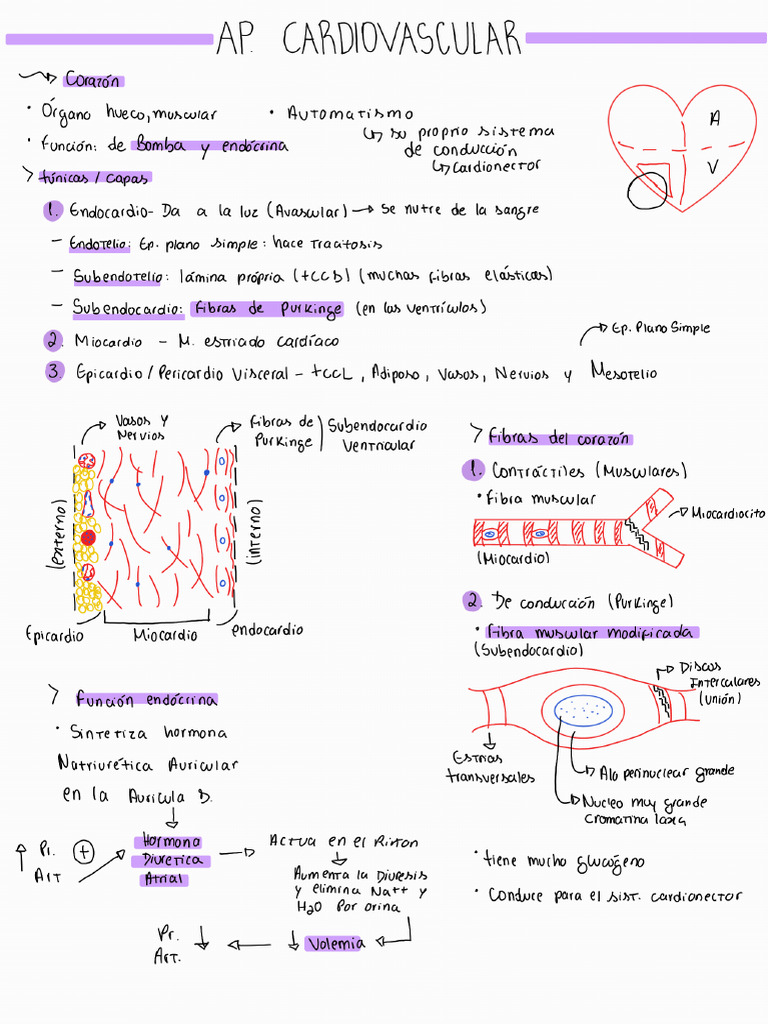 AP. CARDIOVASCULAR
Corazón
• Órgano hueco, muscular
• Función: de Bomba y endócrina
• Automatismo
↳ su propio sistema
de conducción
↳ Cardionector
A
V
> túnicas / capas
1. Endocardio - Da a la luz (Avascular) → Se nutre de la sangre
- Endotelio: Ep. plano simple: hace tracitosis
- Subendotelio: lámina própria (tCCD) (muchas fibras elásticas)
- Subendocardio: Fibras de Purkinge (en los ventrículos)
2. Miocardio - M. estriado cardíaco
3. Epicardio / Pericardio Visceral - tCCL, Adiposo, Vasos, Nervios y Mesotelio
Ep. Plano Simple
Vasos y
Nervios
Fibras de
Purkinge
Subendocardio
Ventricular
(externo)
(interno)
Epicardio
Miocardio
endocardio
> Fibras del corazón
1. Contráctiles (Musculares)
• Fibra muscular
Miocardiocito
(Miocardio)
2. De conducción (Purkinge)
• Fibra muscular modificada
(Subendocardio)
Discos
Intercalares
(unión)
Estrias
transversales
Alo perinuclear grande
Nucleo muy grande
cromatina laxa
• tiene mucho glucógeno
• Conduce para el sist. cardionector
> Función endócrina
• Sintetiza hormona
Natriurética Auricular
en la Aurícula D.
↑ Pr.
Art
+
Hormona
Diuretica
Atrial
Actua en el Riñon
Aumenta la Diuresis
y elimina Na++ y
H2O Por orina
↓ Volemia
Pr.
Art. ↓